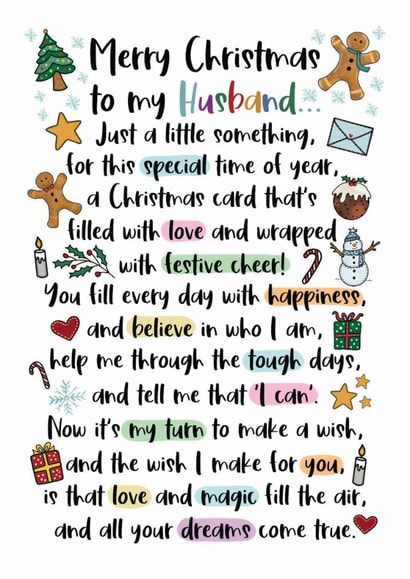 Merry Christmas
to my Husband...
Just a little something,
for this special time of year,
a Christmas card that's
filled with love and wrapped
with festive cheer!
You fill every day with happiness,
and believe in who I am,
help me through the tough days,
and tell me that 'I can'.
Now it's my turn to make a wish,
and the wish I make for you,
is that love and magic fill the air,
and all your dreams come true.